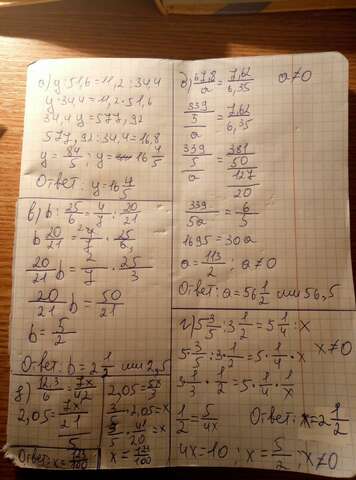 а) y:51,6=11,2:34,4
y·34,4=11,2·51,6
34,4y=577,92
577,92:34,4=16,8
y=84/5; y=16 4/5
Ответ: y=16 4/5
в) b:25/6=4/7:20/21
b 20/21=4/7·25/6
20/21 b=2/7·25/3
20/21 b=50/21
b=5/2
Ответ: b=2 1/2 или 2,5
2,05=7x/21/5
Ответ: x=123/100
2,05=5x/3
3/5·2,05=x
3/5·41/20=x
x=123/100
67,8/a=7,62/6,35 a≠0
339/5/a=7,62/6,35
339/5/a=381/50/127/20
339/5a=6/5
1695=30a
a=113/2; a≠0
Ответ: a=56 1/2 или 56,5
г) 5 3/5:3 1/2=5 1/4:x
5·3/5:3·1/2=5·1/4·x x≠0
3·1/3·1/2=5·1/4·1/x
1/2=5/4x Ответ: x=2 1/2
4x=10; x=5/2; x≠0